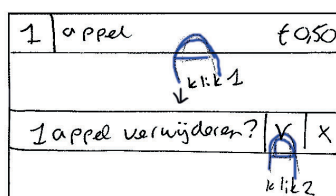 1 appel €0,50
klik 1
1 appel verwijderen? V X
klik 2